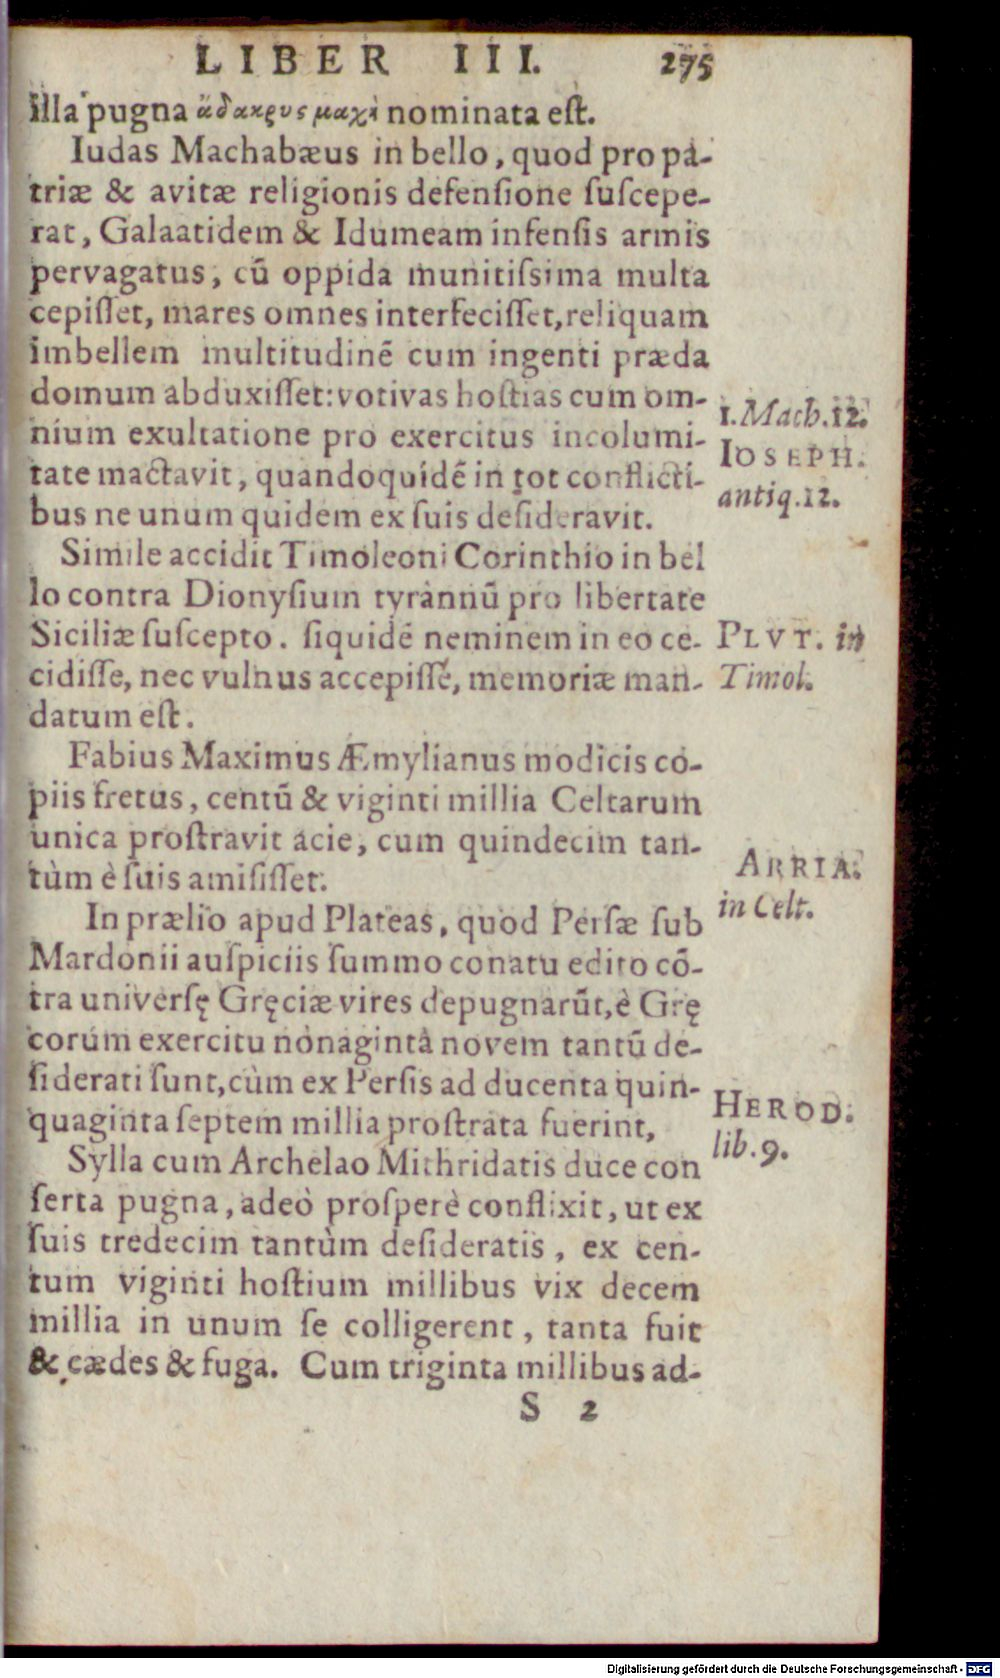 LIBER III. 275
illa pugna ἄδακρυς μαχὴ nominata est.
Iudas Machabæus in bello, quod pro pa-
triæ & avitæ religionis defensione suscepe-
rat, Galaatidem & Idumeam infensis armis
pervagatus, cũ oppida munitissima multa
cepisset, mares omnes interfecisset, reliquam
imbellem multitudinẽ cum ingenti præda
domum abduxisset: votivas hostias cum om-
nium exultatione pro exercitus incolumi-
tate mactavit, quandoquidẽ in tot conflicti-
bus ne unum quidem ex suis desideravit.
1. Mach. 12.
IOSEPH.
antiq. 12.
Simile accidit Timoleoni Corinthio in bel
lo contra Dionysium tyrànnũ pro libertate
Siciliæ suscepto. siquidẽ neminem in eo ce-
cidisse, nec vulnus accepisse, memoriæ man-
datum est.
PLVT. in
Timol.
Fabius Maximus Æmylianus modicis co-
piis fretus, centũ & viginti millia Celtarum
unica prostravit acie, cum quindecim tan-
tùm è suis amisisset.
ARRIA.
in Celt.
In prælio apud Plateas, quod Persæ sub
Mardonii auspiciis summo conatu edito cõ-
tra universę Gręciæ vires depugnarũt, è Grę
corum exercitu nonaginta novem tantũ de-
siderati sunt, cùm ex Persis ad ducenta quin-
quaginta septem millia prostrata fuerint,
HEROD.
lib. 9.
Sylla cum Archelao Mithridatis duce con
serta pugna, adeò prosperè conflixit, ut ex
suis tredecim tantùm desideratis, ex cen-
tum viginti hostium millibus vix decem
millia in unum se colligerent, tanta fuit
& cædes & fuga. Cum triginta millibus ad-
S 2
Digitalisierung gefördert durch die Deutsche Forschungsgemeinschaft - DFG